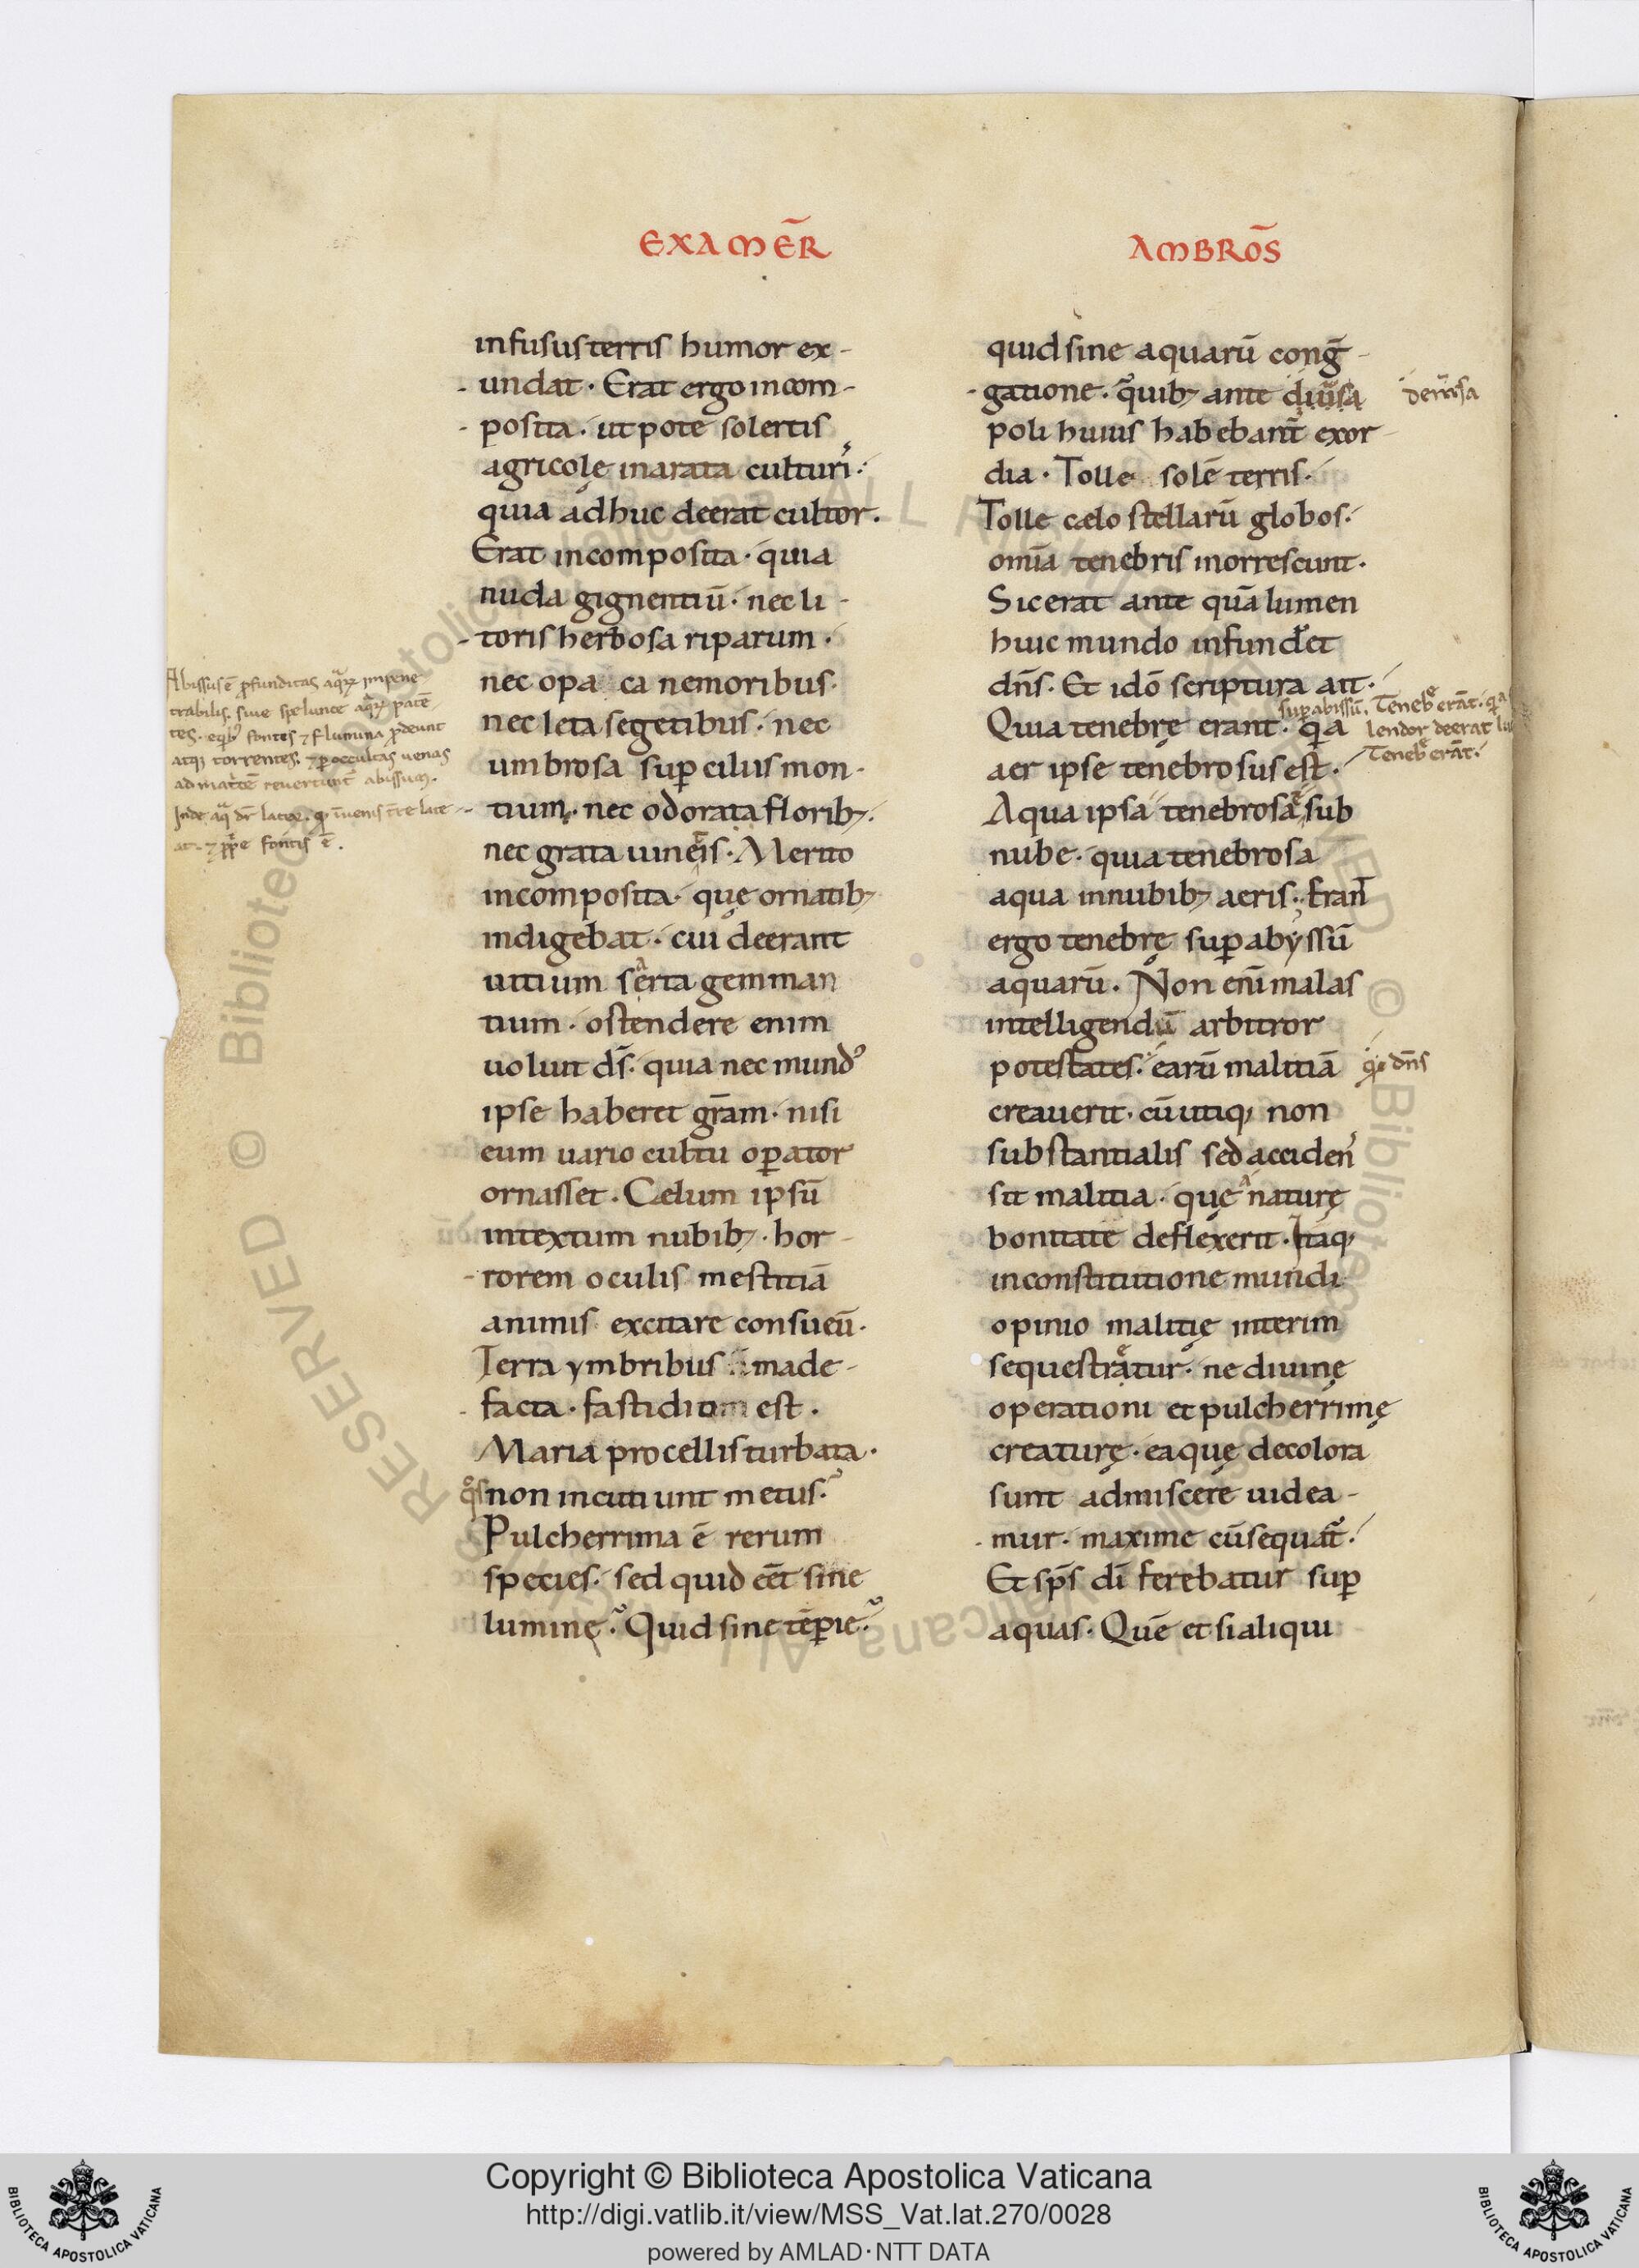 EXAMER̄
AMBROS̄
infusus terris humor ex-
undat · Erat ergo incom-
posita · utpote solertis
agricolę inarata culturi᷑ ·
quia adhuc deerat cultor.
Erat incomposita · quia
nuda gignentiū · nec li-
toris herbosa riparum ·
nec opa ca nemoribus ·
nec leta segetibus · nec
umbrosa sup̄ciliis mon-
tium · nec odorata florib; ·
nec grata uineis · Merito
incomposita · quę ornatib;
indigebat · cui deerant
uitium serta gemman
tium · ostendere enim
uoluit ds̄ · quia nec mundꝰ
ipse haberet gr̄am · nisi
eum uario cultu op̄ator
ornasset · Cælum ipsū
intextum nubib; · hor-
rorem oculis mestitiā
animis excitare consueū ·
Terra ymbribus made-
facta · fastidium est ·
Maria procellis turbata ·
qͦs non incutiunt metus ·
Pulcherrima ē rerum
species · sed quid eēt sine
luminę · Quid sine tēperie ·
quid sine aquarū conḡ
gatione · quib; ante diūsa
poli huius habebant̄ exor
dia · Tolle solē terris ·
Tolle cælo stellarū globos ·
omīa tenebris inorrescunt ·
Sic erat ante quā lumen
huic mundo infundet
dn̄s · Et idō scriptura ait ·
Quia tenebrę erant · qͥa
aer ipse tenebrosus est ·
Aqua ipsa tenebrosa sub
nube · quia tenebrosa
aqua in nubib; aeris · Erant̄
ergo tenebrę sup̄ abyssū
aquarū · Non eni̅ malas
intelligendū arbitror
potestates · earū malitiā
creauerit · cū utiq; non
substantialis sed acciden᷑
sit malitia · quę a naturę
bonitate deflexerit · Itaq;
in constitutione mundi
opinio malitię interim
sequestretur · ne diuinę
operationi et pulcherrimę
creaturę · ea quę decolora
sunt admiscere uidea-
mur · maxime cū sequat᷑ ·
Et sp̄s dī ferebatur sup̄
aquas · Quē et si aliqui
Abissus ē p̄funditas aqͣꝝ impene
trabilis. siue speluncę aqͣꝝ patē
tes. e qͥbꝰ fontes ⁊ flumina p̄deunt
atq; torrentes. ⁊ p̄ occultas uenas
ad matcē reuertunt᷑ abissum.
sup̄ abissū. Tenebꝭ erāt. qͥa
lendor deerat
Tenebꝭ erāt.
qͥ dn̄s